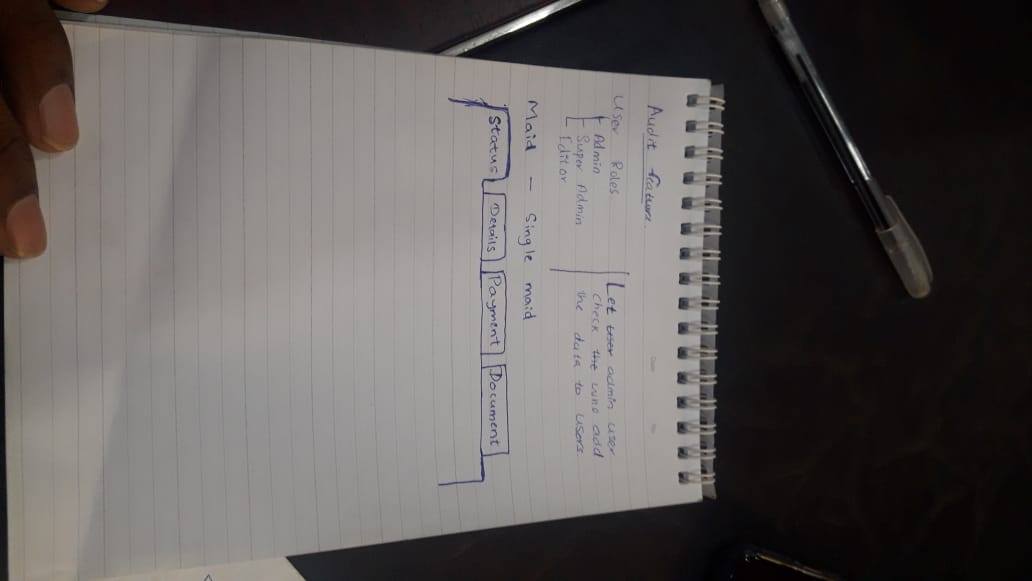 Audit feature.
User Roles
Admin
Super Admin
Editor
Let user admin user
check the who add
the data to users.
Maid - Single maid
Status Details Payment Document